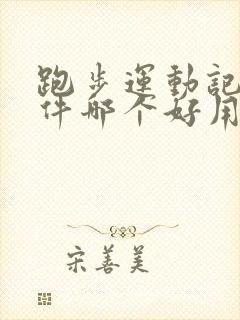 跑步運動記
件哪个好用
宋善美